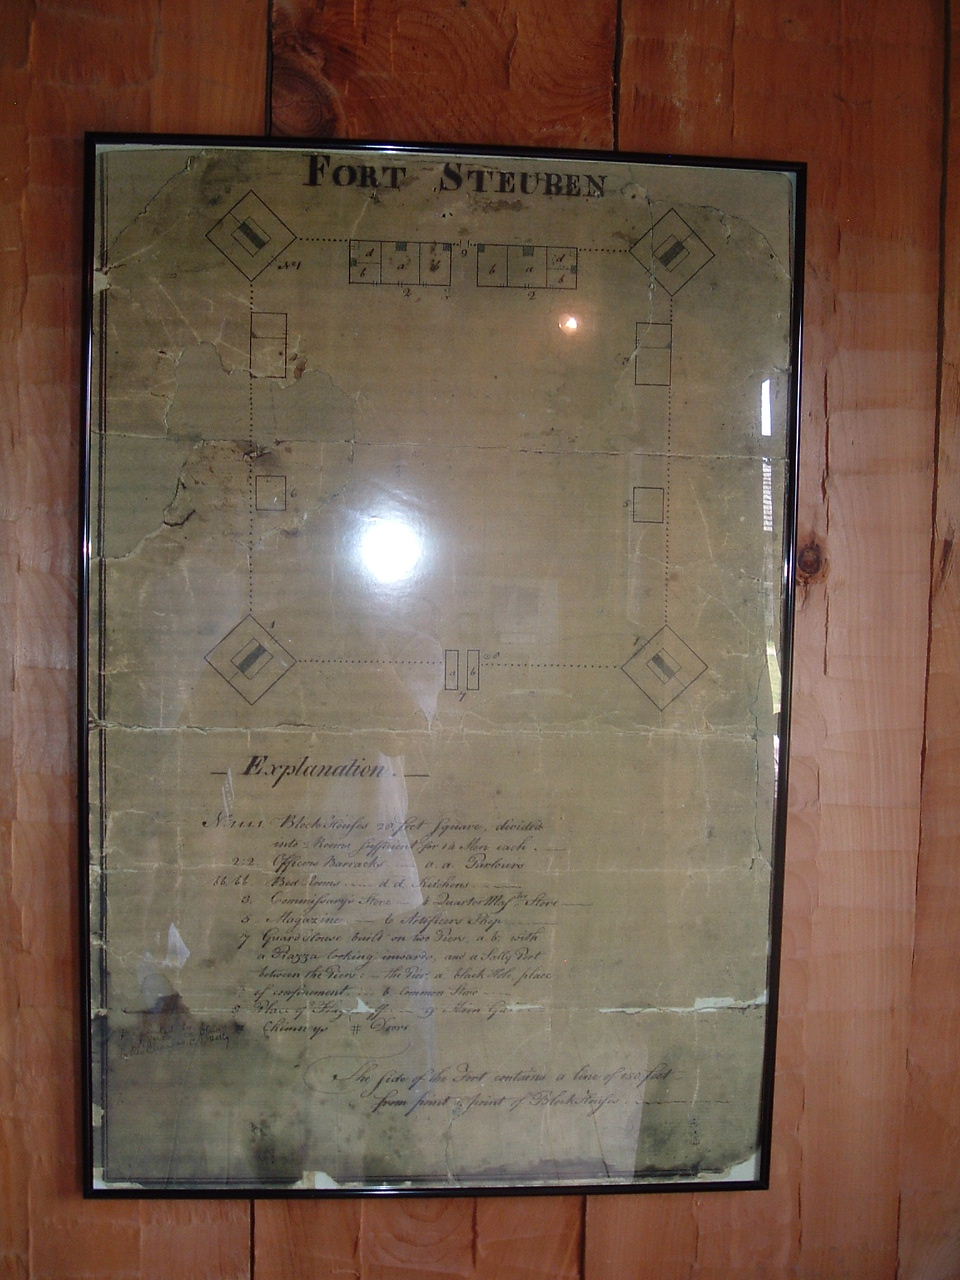 FORT STEUBEN
No 1
d
b
a
b
9
b
a
d
b
2
2
3
6
5
1
1
a
b
8
7
Explanation.
No. 1.1.1.1 Block Houses 28 feet Square, divided
into Rooms sufficient for 14 Men each.
2.2. Officers Barracks a. a. Parlours
bb. bb. Bed Rooms d d. Kitchens
3. Commissary's Store 4 Quarter Mas. Store
5 Magazine 6 Artificers Shop
7 Guard House built on two Piers, a. b. with
a Piazza looking inwards, and a Sally Port
between the Piers: the Pier, a black Hole, place
of confinement b Common Store
8 Place of Flag 9 Main
Chimneys # Doors
The side of the Fort contains a line of 150 feet
from point to point of Block Houses.